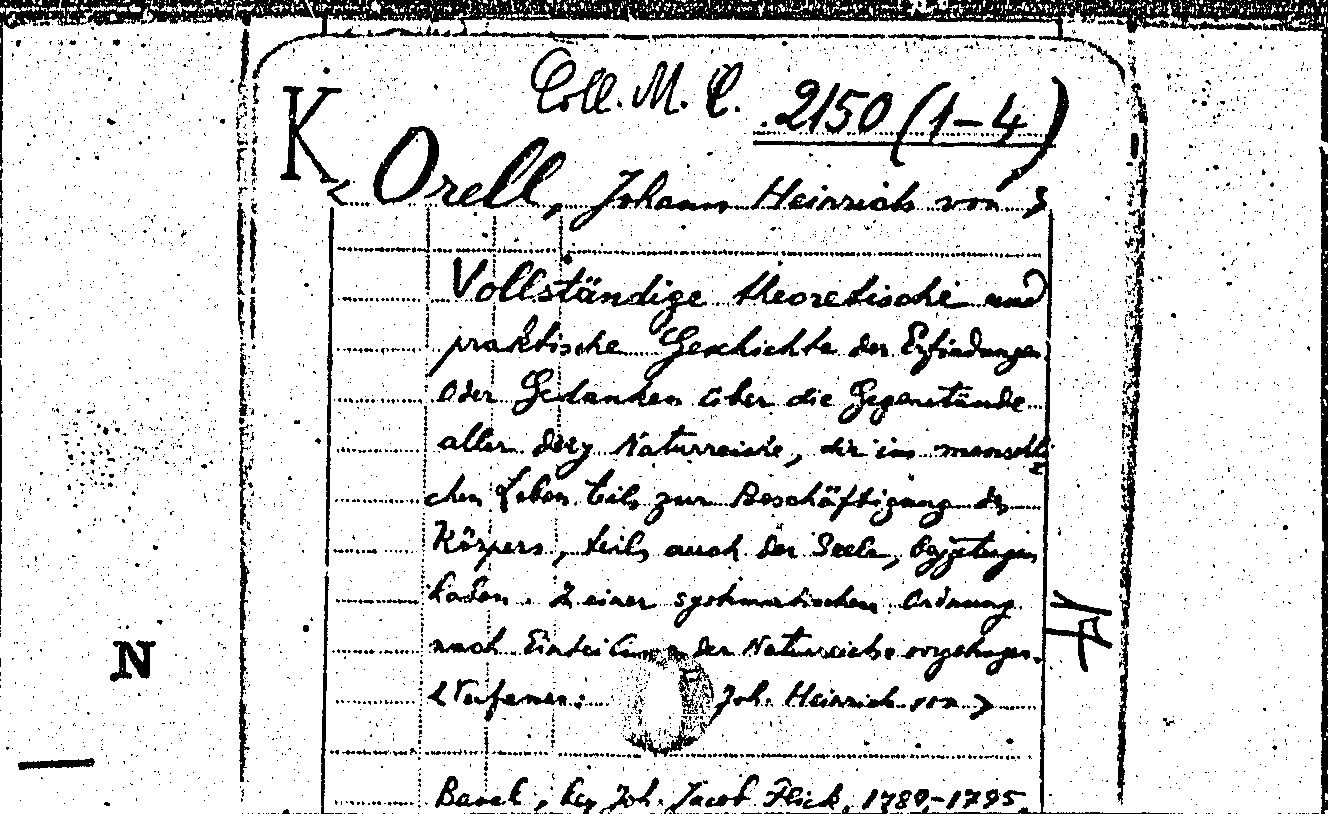 Coll. M. C. 2150 (1-4)
K
< Orell, Johann Heinrich von >
Vollständige theoretische und
praktische Geschichte der Erfindungen
oder Gedanken über die Gegenstände
aller drey Naturreiche, die im menschli
chen Leben teils zur Beschäftigung des
Körpers, teils auch der Seele,
haben. In einer systematischen Ordnung
nach der Naturreiche vorgetragen.
<Verfasser: Joh. Heinrich von >
Basel, bey Joh. Jacob Flick, 1789-1795.
N